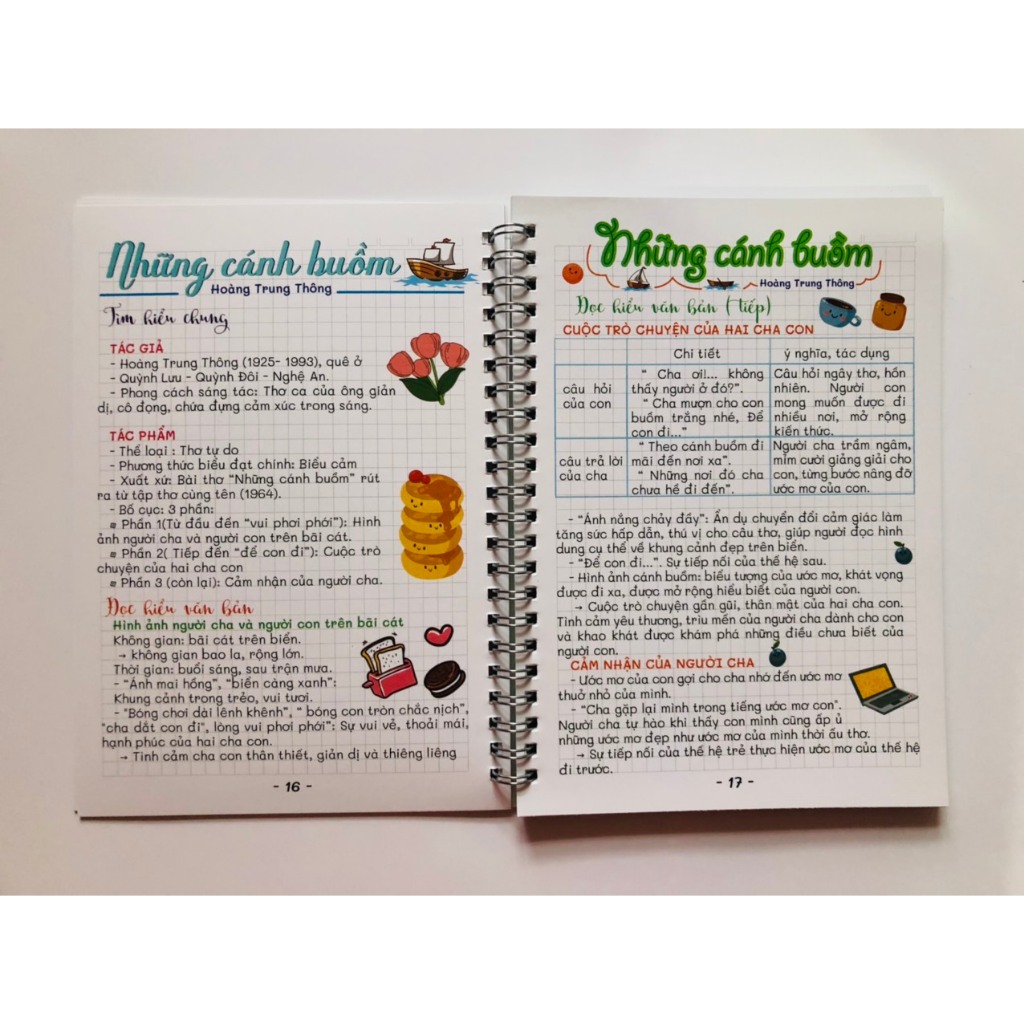 Những cánh buồm
Hoàng Trung Thông
Tìm hiểu chung
TÁC GIẢ
- Hoàng Trung Thông (1925- 1993), quê ở
- Quỳnh Lưu - Quỳnh Đôi - Nghệ An.
- Phong cách sáng tác: Thơ ca của ông giản
dị, cô đọng, chứa đựng cảm xúc trong sáng.
TÁC PHẨM
- Thể loại : Thơ tự do
- Phương thức biểu đạt chính: Biểu cảm
- Xuất xứ: Bài thơ “Những cánh buồm” rút
ra từ tập thơ cùng tên (1964).
- Bố cục: 3 phần:
Phần 1(Từ đầu đến “vui phơi phới”): Hình
ảnh người cha và người con trên bãi cát.
Phần 2( Tiếp đến “để con đi”): Cuộc trò
chuyện của hai cha con
Phần 3 (còn lại): Cảm nhận của người cha.
Đọc hiểu văn bản
Hình ảnh người cha và người con trên bãi cát
Không gian: bãi cát trên biển.
→ không gian bao la, rộng lớn.
Thời gian: buổi sáng, sau trận mưa.
- “Ánh mai hồng”, “biển càng xanh”:
Khung cảnh trong trẻo, vui tươi.
- "Bóng chơi dài lênh khênh”, “ bóng con tròn chắc nịch”,
"cha dắt con đi", lòng vui phơi phới”: Sự vui vẻ, thoải mái,
hạnh phúc của hai cha con.
→ Tình cảm cha con thân thiết, giản dị và thiêng liêng
- 16 -
Những cánh buồm
Hoàng Trung Thông
Đọc hiểu văn bản ( tiếp)
CUỘC TRÒ CHUYỆN CỦA HAI CHA CON
Chi tiết
ý nghĩa, tác dụng
câu hỏi
của con
“ Cha ơi!... không
thấy người ở đó?”.
“ Cha mượn cho con
buồm trắng nhé, Để
con đi...”
Câu hỏi ngây thơ, hồn
nhiên. Người con
mong muốn được đi
nhiều nơi, mở rộng
kiến thức.
câu trả lời
của cha
“ Theo cánh buồm đi
mãi đến nơi xa”.
“ Những nơi đó cha
chưa hề đi đến”.
Người cha trầm ngâm,
mỉm cười giảng giải cho
con, từng bước nâng đỡ
ước mơ của con.
- “Ánh nắng chảy đầy”: Ẩn dụ chuyển đổi cảm giác làm
tăng sức hấp dẫn, thú vị cho câu thơ, giúp người đọc hình
dung cụ thể về khung cảnh đẹp trên biển.
- “Để con đi...”. Sự tiếp nối của thế hệ sau.
- Hình ảnh cánh buồm: biểu tượng của ước mơ, khát vọng
được đi xa, được mở rộng hiểu biết của người con.
→ Cuộc trò chuyện gần gũi, thân mật của hai cha con.
Tình cảm yêu thương, trìu mến của người cha dành cho con
và khao khát được khám phá những điều chưa biết của
người con.
CẢM NHẬN CỦA NGƯỜI CHA
- Ước mơ của con gợi cho cha nhớ đến ước mơ
thuở nhỏ của mình.
- “Cha gặp lại mình trong tiếng ước mơ con".
Người cha tự hào khi thấy con mình cũng ấp ủ
những ước mơ đẹp như ước mơ của mình thời ấu thơ.
→ Sự tiếp nối của thế hệ trẻ thực hiện ước mơ của thế hệ
đi trước.
- 17 -